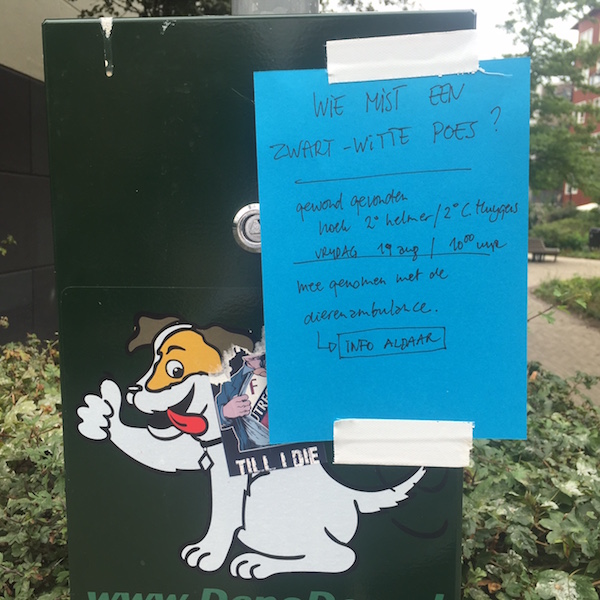 WIE MIST EEN
ZWART-WITTE POES?
gewond gevonden
hoek 2e helmer/2e C. Huygens
VRIJDAG 19 aug / 1000 uur
mee genomen met de
dierenambulance.
INFO ALDAAR
F
UTRE
TILL I DIE
www.